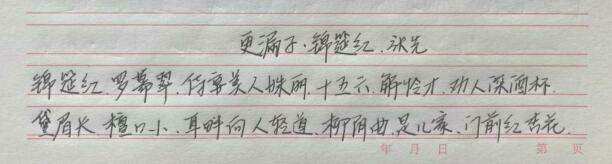 更漏子·锦筵红.张先
锦筵红.罗幕翠.侍宴美人姝丽.十五六.解怜才.劝人深酒杯.
黛眉长.檀口小.耳畔向人轻道.柳阴曲.是儿家.门前红杏花.
年 月 日 第 页